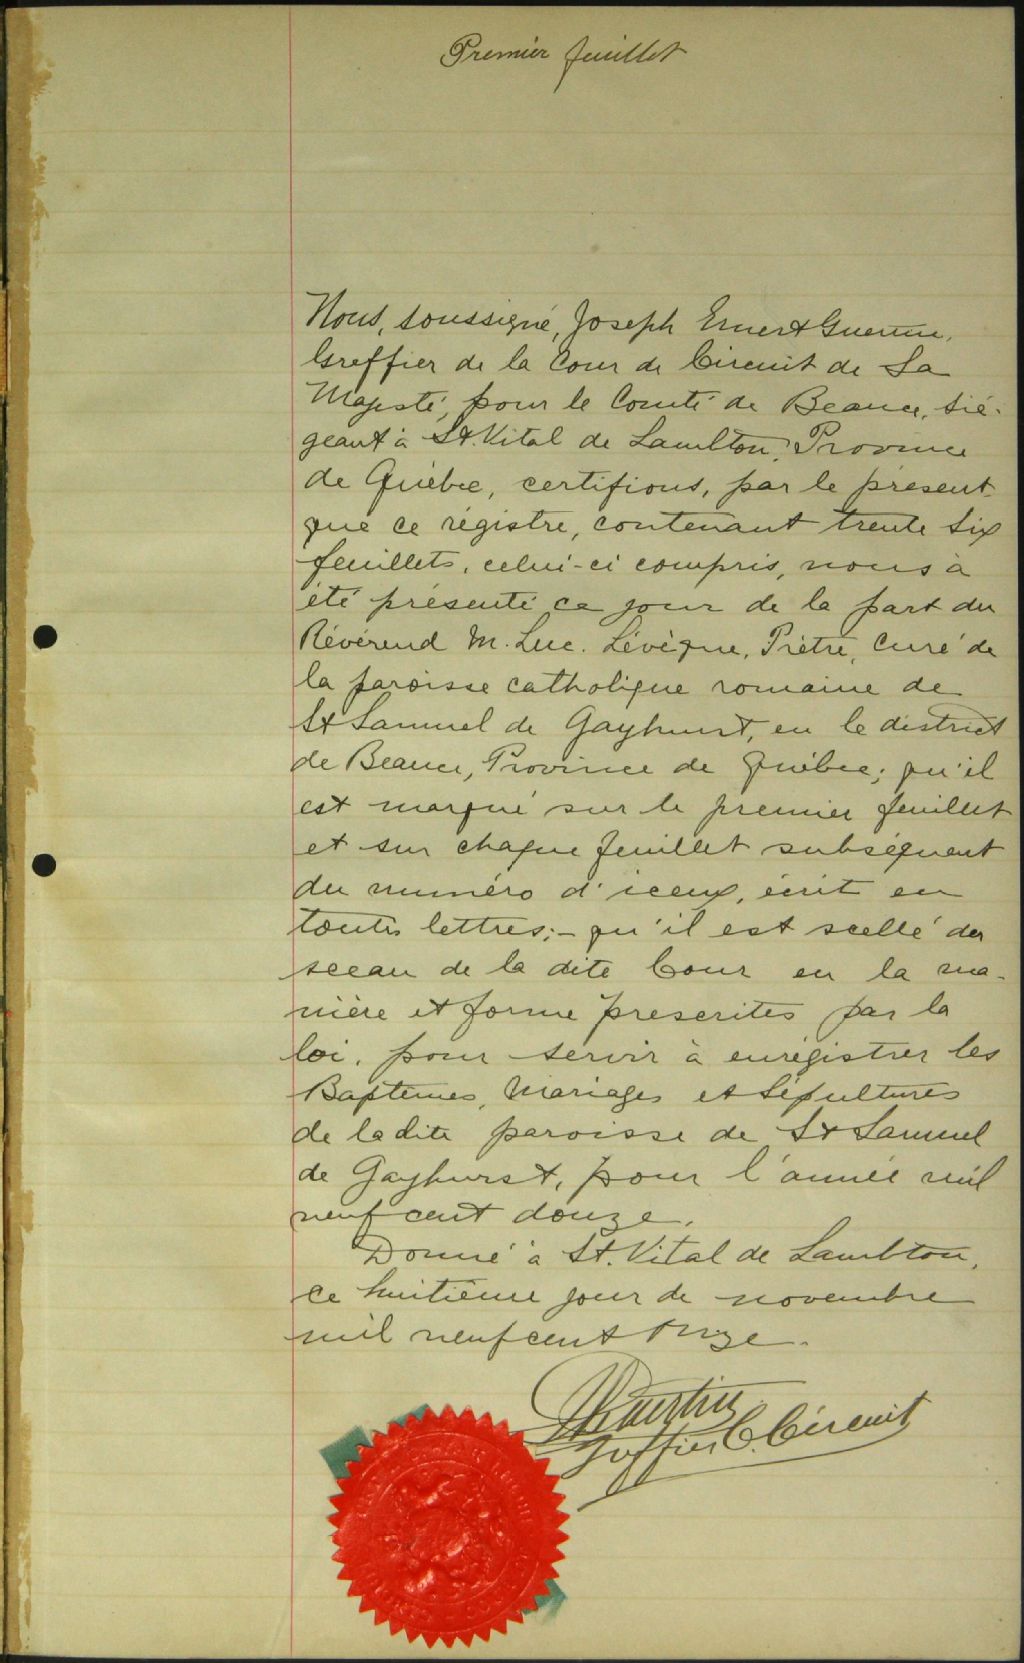 Premier feuillet
Nous, soussigné, Joseph Ernest
Greffier de la Cour de Circuit de Sa
Majesté, pour le Comté de Beauce, sié-
geant à St. Vital de Lambton, Province
de Québec, certifions, par le présent
que ce régistre, contenant trente six
feuillets, celui-ci compris, nous à
été présenté ce jour de la part du
Révérend M. Luc. Lévêque, Prêtre, Curé de
la paroisse catholique romaine de
St Samuel de Gayhurst, en le district
de Beauce, Province de Québec; qu'il
est marqué sur le premier feuillet
et sur chaque feuillet subséquent
du numéro d'iceux, écrit en
toutes lettres;- qu'il est scellé du
sceau de la dite Cour en la ma-
nière et forme prescrites par la
loi, pour servir à enrégistrer les
Baptêmes, Mariages et Sépultures
de la dite paroisse de St Samuel
de Gayhurst, pour l'année mil
neuf cent douze.
Donné à St. Vital de Lambton,
ce huitième jour de novembre
mil neuf cent onze.
Greffier C. Circuit